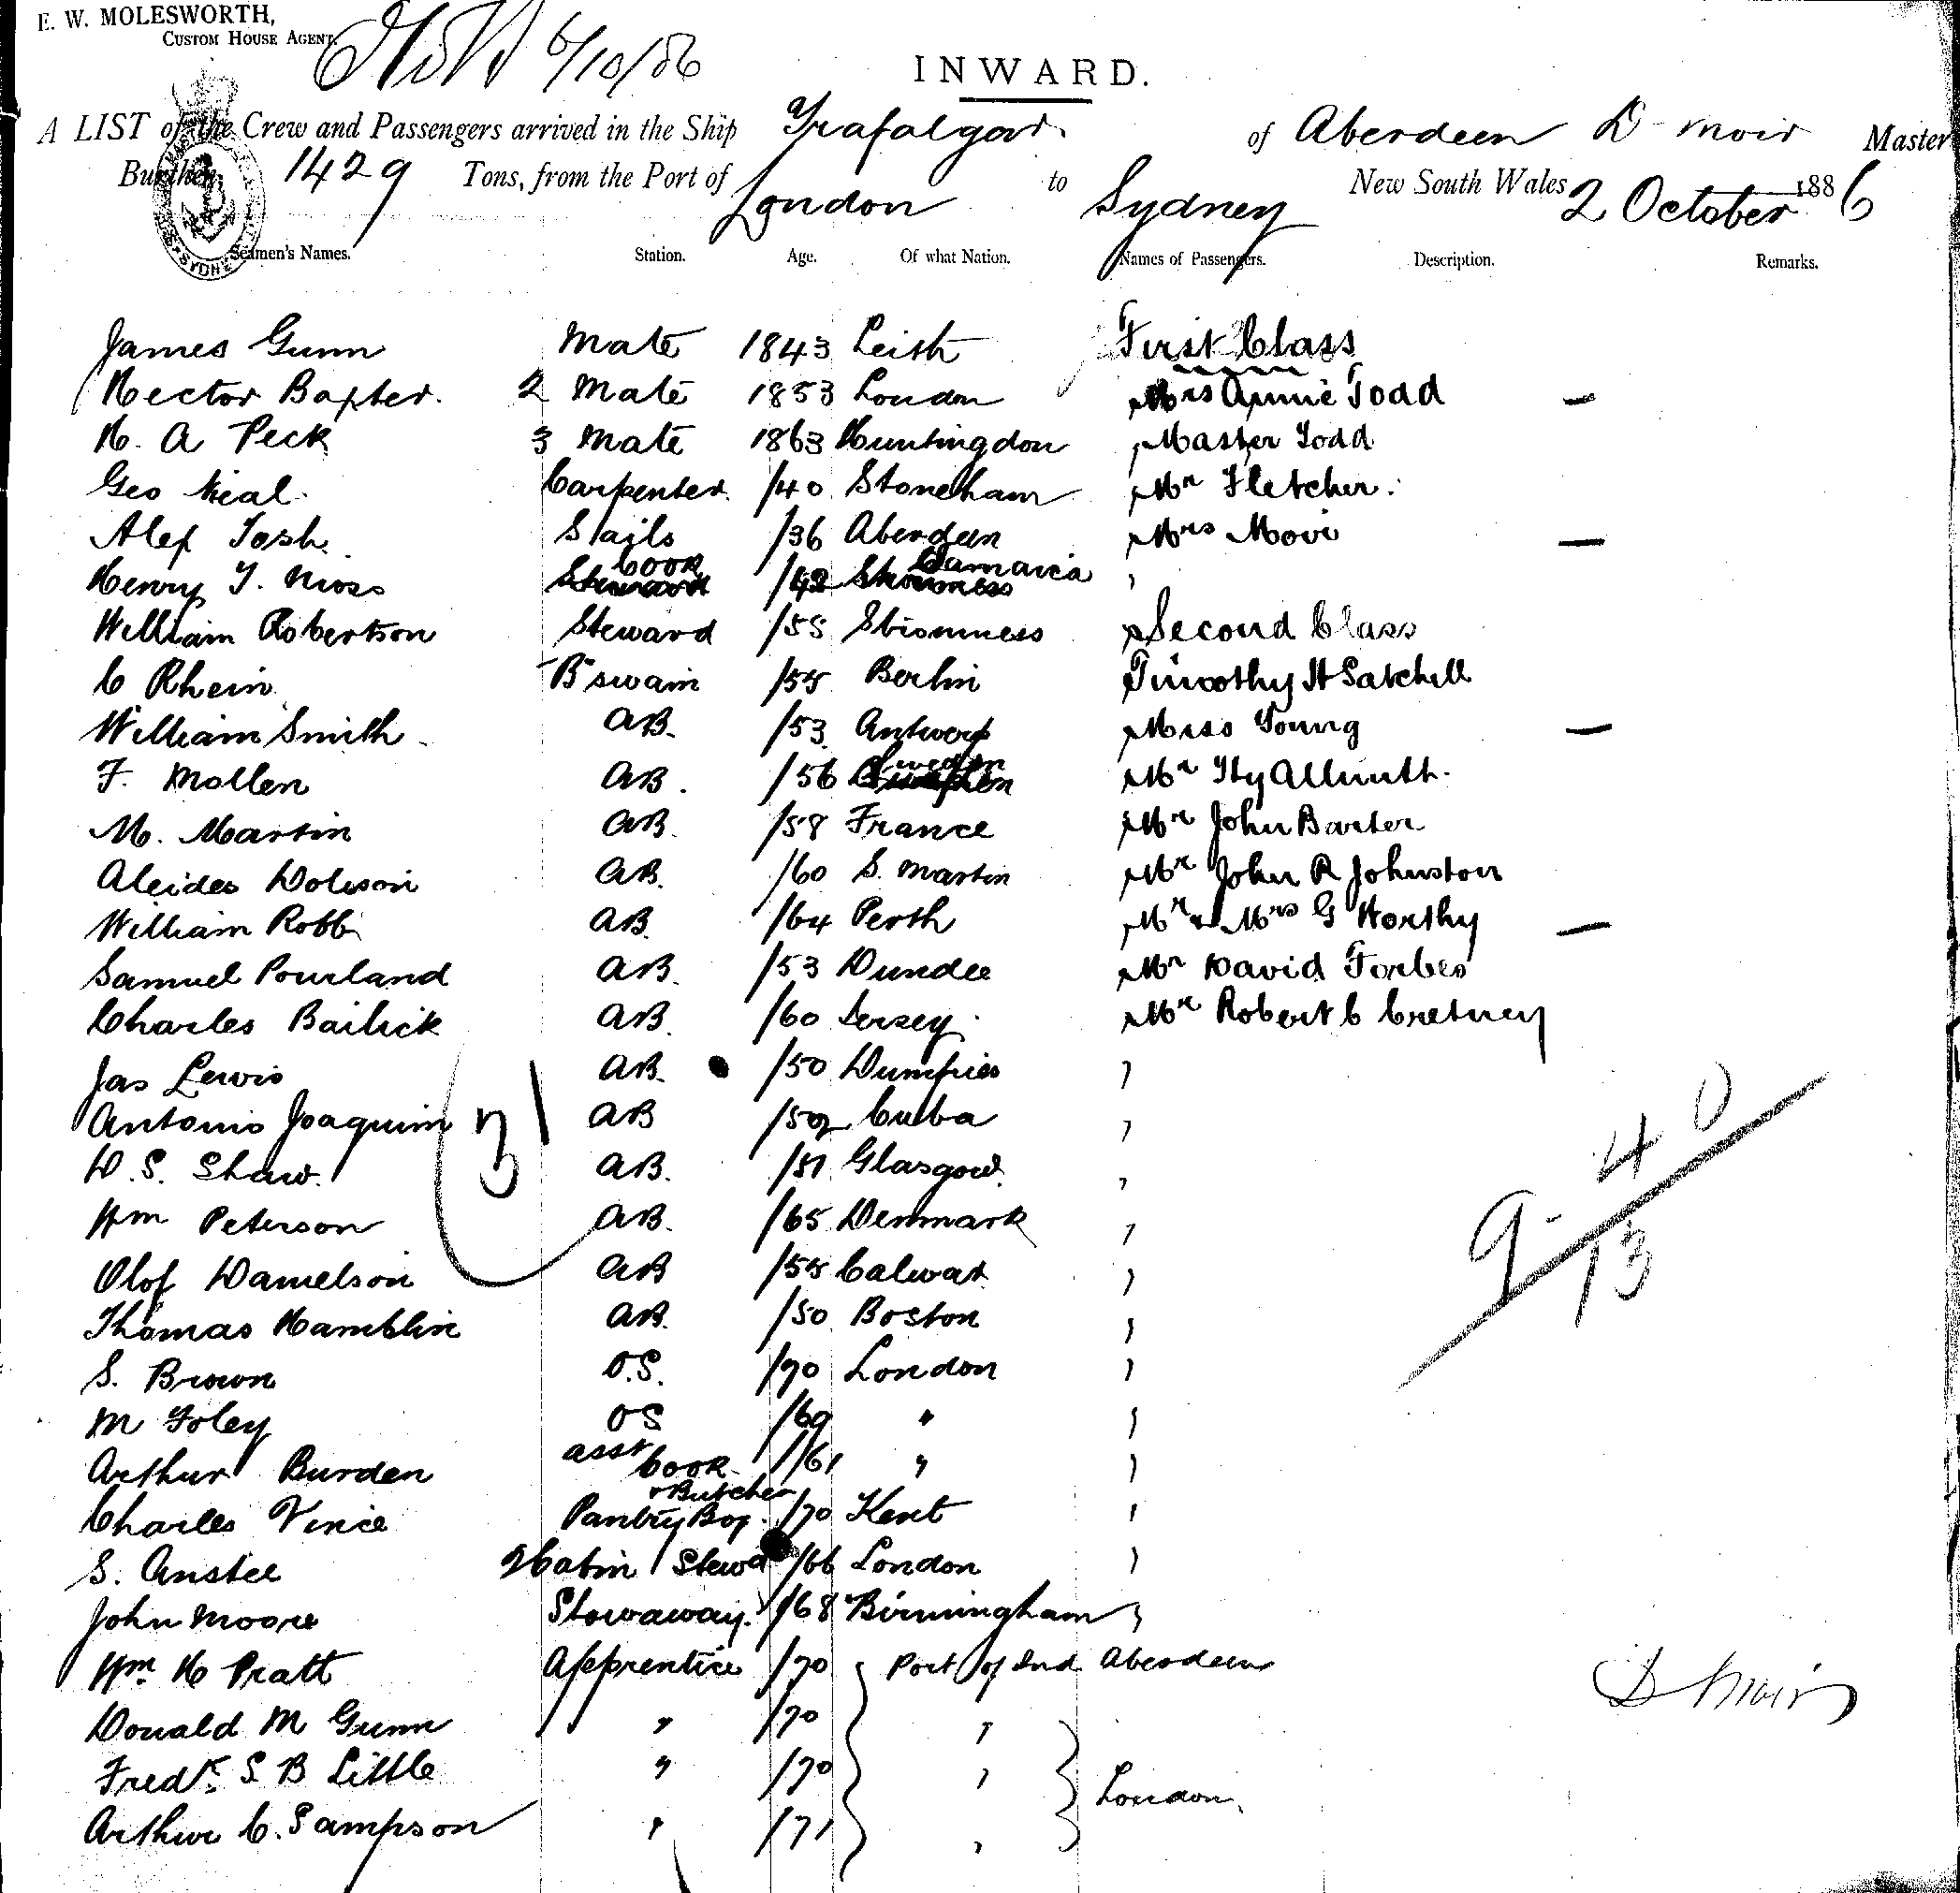 E. W. MOLESWORTH,
CUSTOM HOUSE AGENT.
6/10/86
INWARD.
A LIST of the Crew and Passengers arrived in the Ship Trafalgar of Aberdeen D Moir Master
Burthen 1429 Tons, from the Port of London to Sydney New South Wales 2 October 1886
SYDNEY
Seamen's Names. Station. Age. Of what Nation. Names of Passengers. Description. Remarks.
James Gunn Mate 1843 Leith First Class
Hector Baxter. 2 Mate 1853 London Mrs Annie Todd —
H. A Peck 3 Mate 1863 Huntingdon Master Todd
Geo Neal Carpenter. /40 Stoneham Mr Fletcher.
Alex Tosh. Sails /36 Aberdeen Mrs Movi —
Henry T. Moss Cook /42 Jamaica
William Robertson Steward /55 Stromness Second Class
C Rhein B'swain /55 Berlin Timothy H Satchell
William Smith AB. /53 Antwerp Miss Young —
F. Mollen AB. /56 Sweden Mr Hy
M. Martin AB. /58 France Mr John Barter
Alcides AB. /60 S. Martin Mr John R Johnston
William Robb AB. /64 Perth Mr & Mrs G Worthy —
Samuel Pourland AB. /53 Dundee Mr David Forbes
Charles Bailick AB. /60 Jersey Mr Robert C Cretney
Jas Lewis AB. /50 Dumfries "
Antonio Joaquim AB /59 Cuba "
31
D. S. Shaw. AB. /51 Glasgow. "
Wm Peterson AB. /65 Denmark "
Olof Danielson AB /55 Calmar "
Thomas Hamblin AB. /50 Boston "
40
9
13
S. Brown O.S. /70 London "
M Foley OS /69 " "
Arthur Burden asst Cook & Butcher /61 " "
Charles Vince Pantry Boy. /70 Kent "
S. Anstee 2 Cabin Stewd /66 London "
John Moore Stowaway. /68 Birmingham "
Wm H Pratt Apprentice /70 Port of Ind Aberdeen
D Moir
Donald M Gunn " /70 "
Fredk S B Little " /70 " London.
Arthur C. Sampson " /71 "